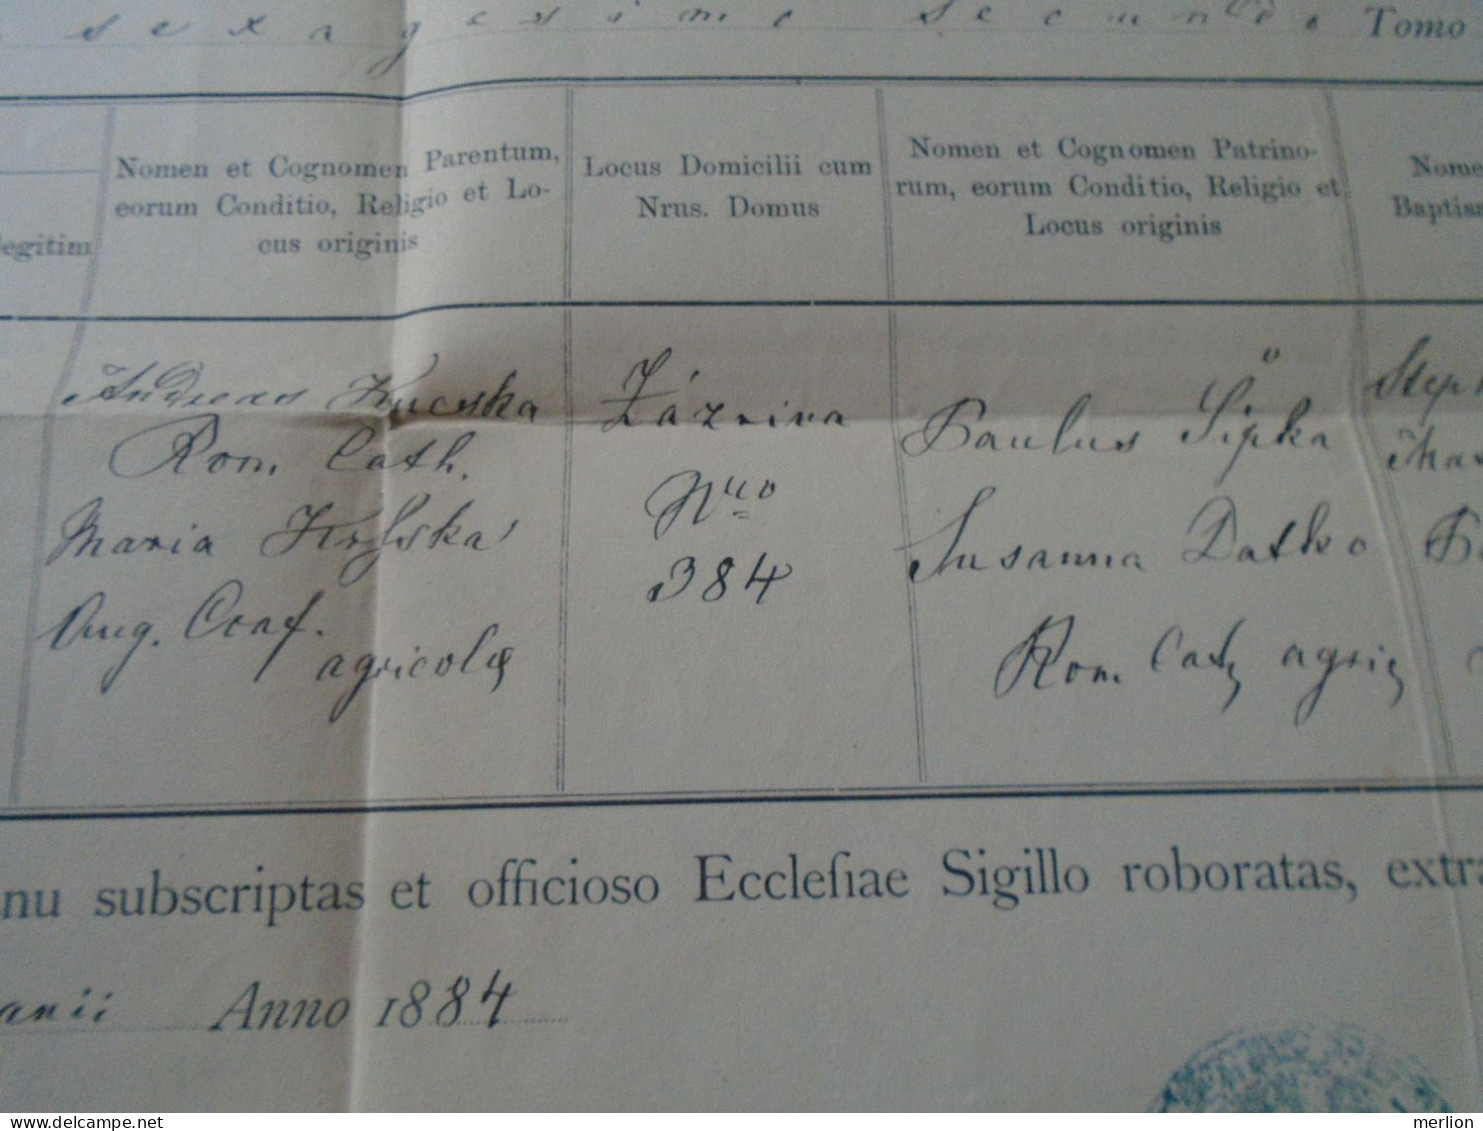 sexagesimo secundo Tomo
legitim
Nomen et Cognomen Parentum,
eorum Conditio, Religio et Lo-
cus originis
Locus Domicilii cum
Nrus. Domus
Nomen et Cognomen Patrino-
rum, eorum Conditio, Religio et
Locus originis
Nome
Baptiss
Andreas Kucska
Rom. Cath.
Maria
Aug. Conf.
agricolæ
Nro
384
Paulus Sipka
Susanna Datko
Rom. Cath. agric
Steph
anu subscriptas et officioso Ecclesiae Sigillo roboratas, extra
Anno 1884
merlion